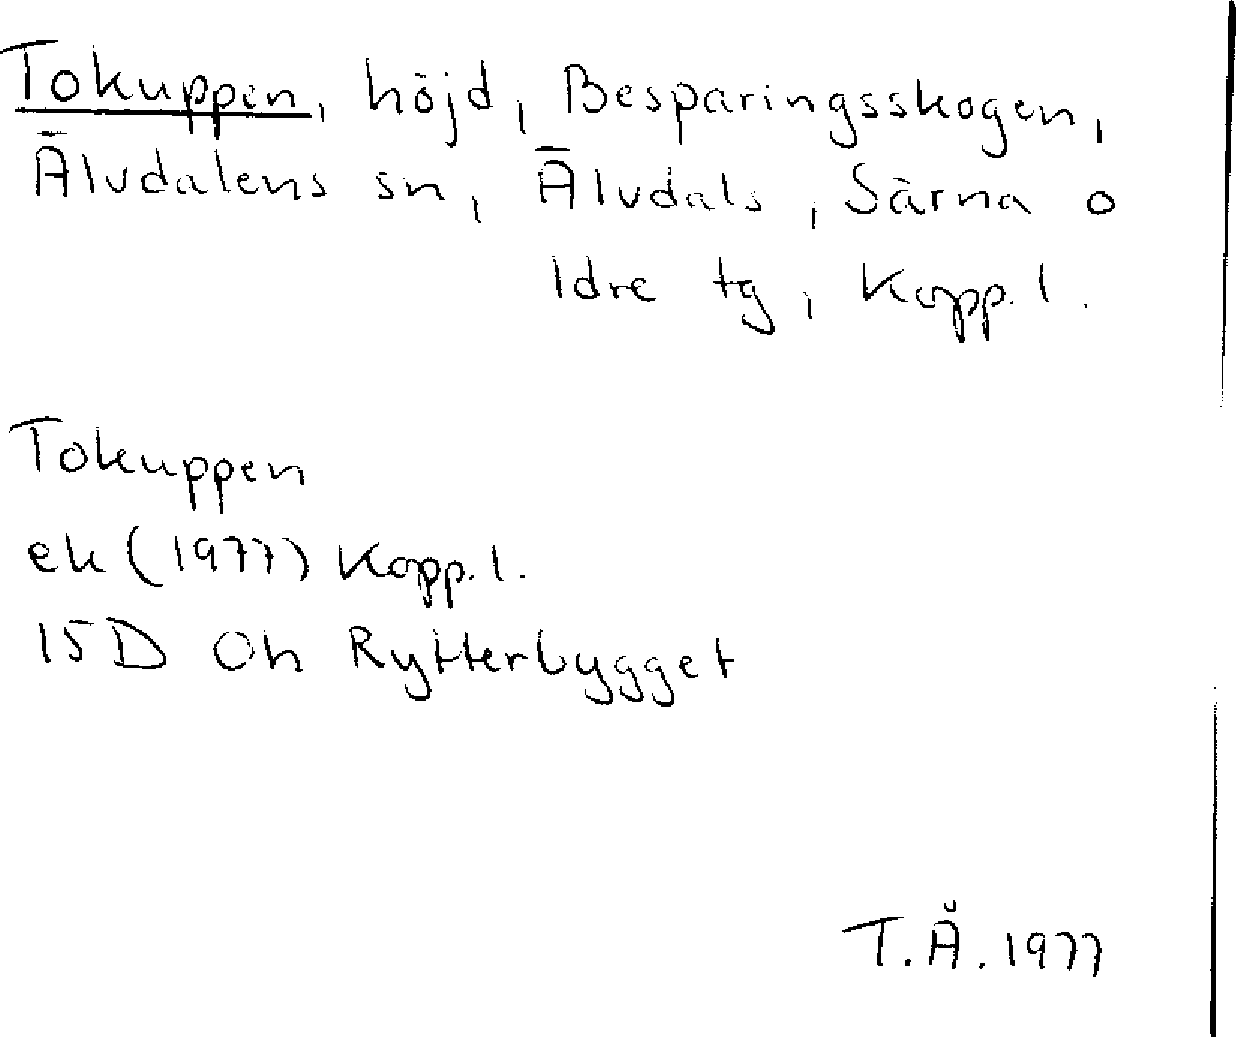 Tokuppen, höjd, Besparingsskogen,
Älvdalens sn, Älvdals, Särna o
Idre tg, Kopp. l.
Tokuppen
ek (1977) Kopp. l.
15D Oh Rytterbygget
T.Å. 1977